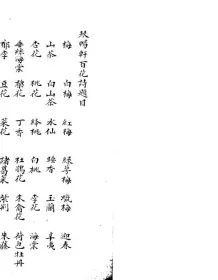 軒百花詩題目
梅 白梅 紅梅 綠萼梅 蠟梅 迎春
山茶 白山茶 水仙 瑞香 玉蘭 辛夷
杏花 桃花 緋桃 白桃 李花 海棠
垂絲海棠 梨花 丁香 杜鵑花 荷包牡丹
郁李 豆花 菜花 諸葛菜 紫荊 朱藤